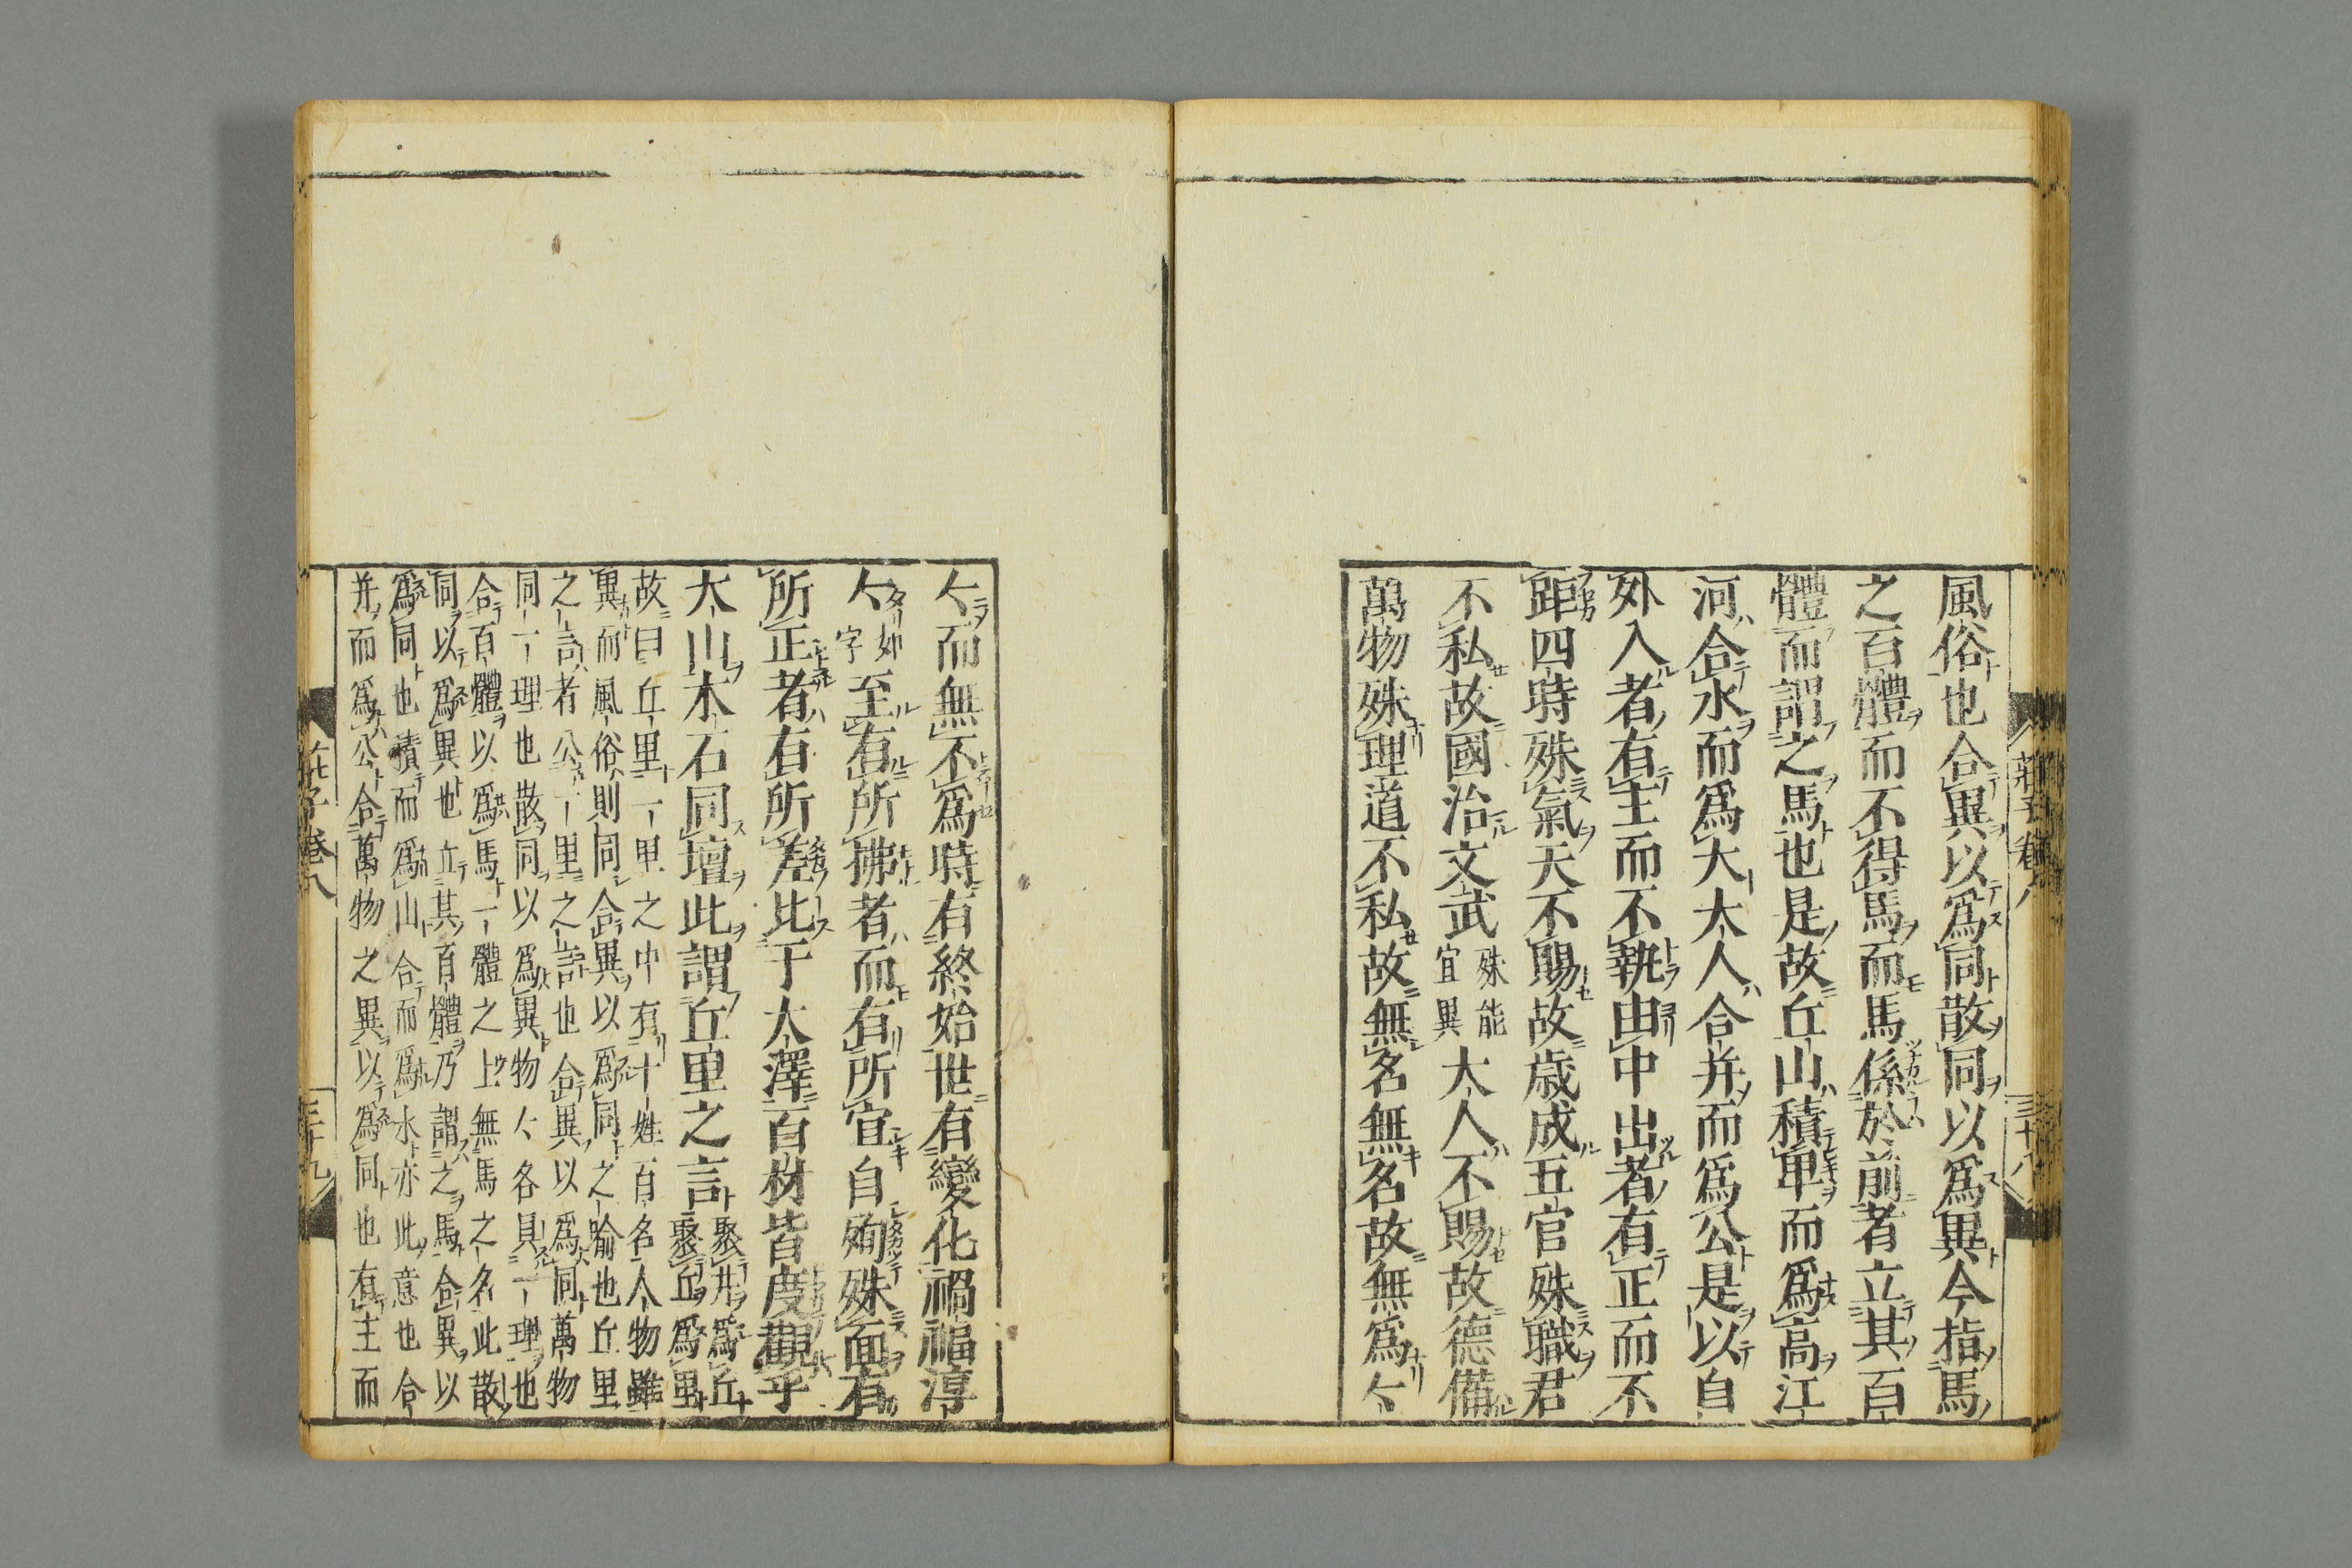 風俗也合異以爲同散同以爲異今指馬
之百體而不得馬而馬係於前者立其百
體而謂之馬也是故丘山積卑而爲高江
河合水而爲大大人合并而爲公是以自
外入者有主而不執由中出者有正而不
距四時殊氣天不賜故歳成五官殊職君
不私故國治文武殊能宜異大人不賜故德備
萬物殊理道不私故無名無名故無爲〻
莊子卷八 三十八
〻而無不爲時有終始世有變化禍福淳
〻如字至有所拂者而有所宜自殉殊面有
所正者有所差比于大澤百材皆度觀乎
大山木石同壇此謂丘里之言聚井爲丘聚丘爲里
故曰丘里一里之中有十姓百名人物雖
異而風俗則同合異以爲同之喻也丘里
之言者公一里之言也合異以爲同萬物
同一理也散同以爲異物〻各具一理也
合百體以爲馬一體之上無馬之名此散
同以爲異也立其百體乃謂之馬合異以
爲同也積而爲山合而爲水亦此意也合
并而爲公合萬物之異以爲同也有主而
莊子卷八 三十九